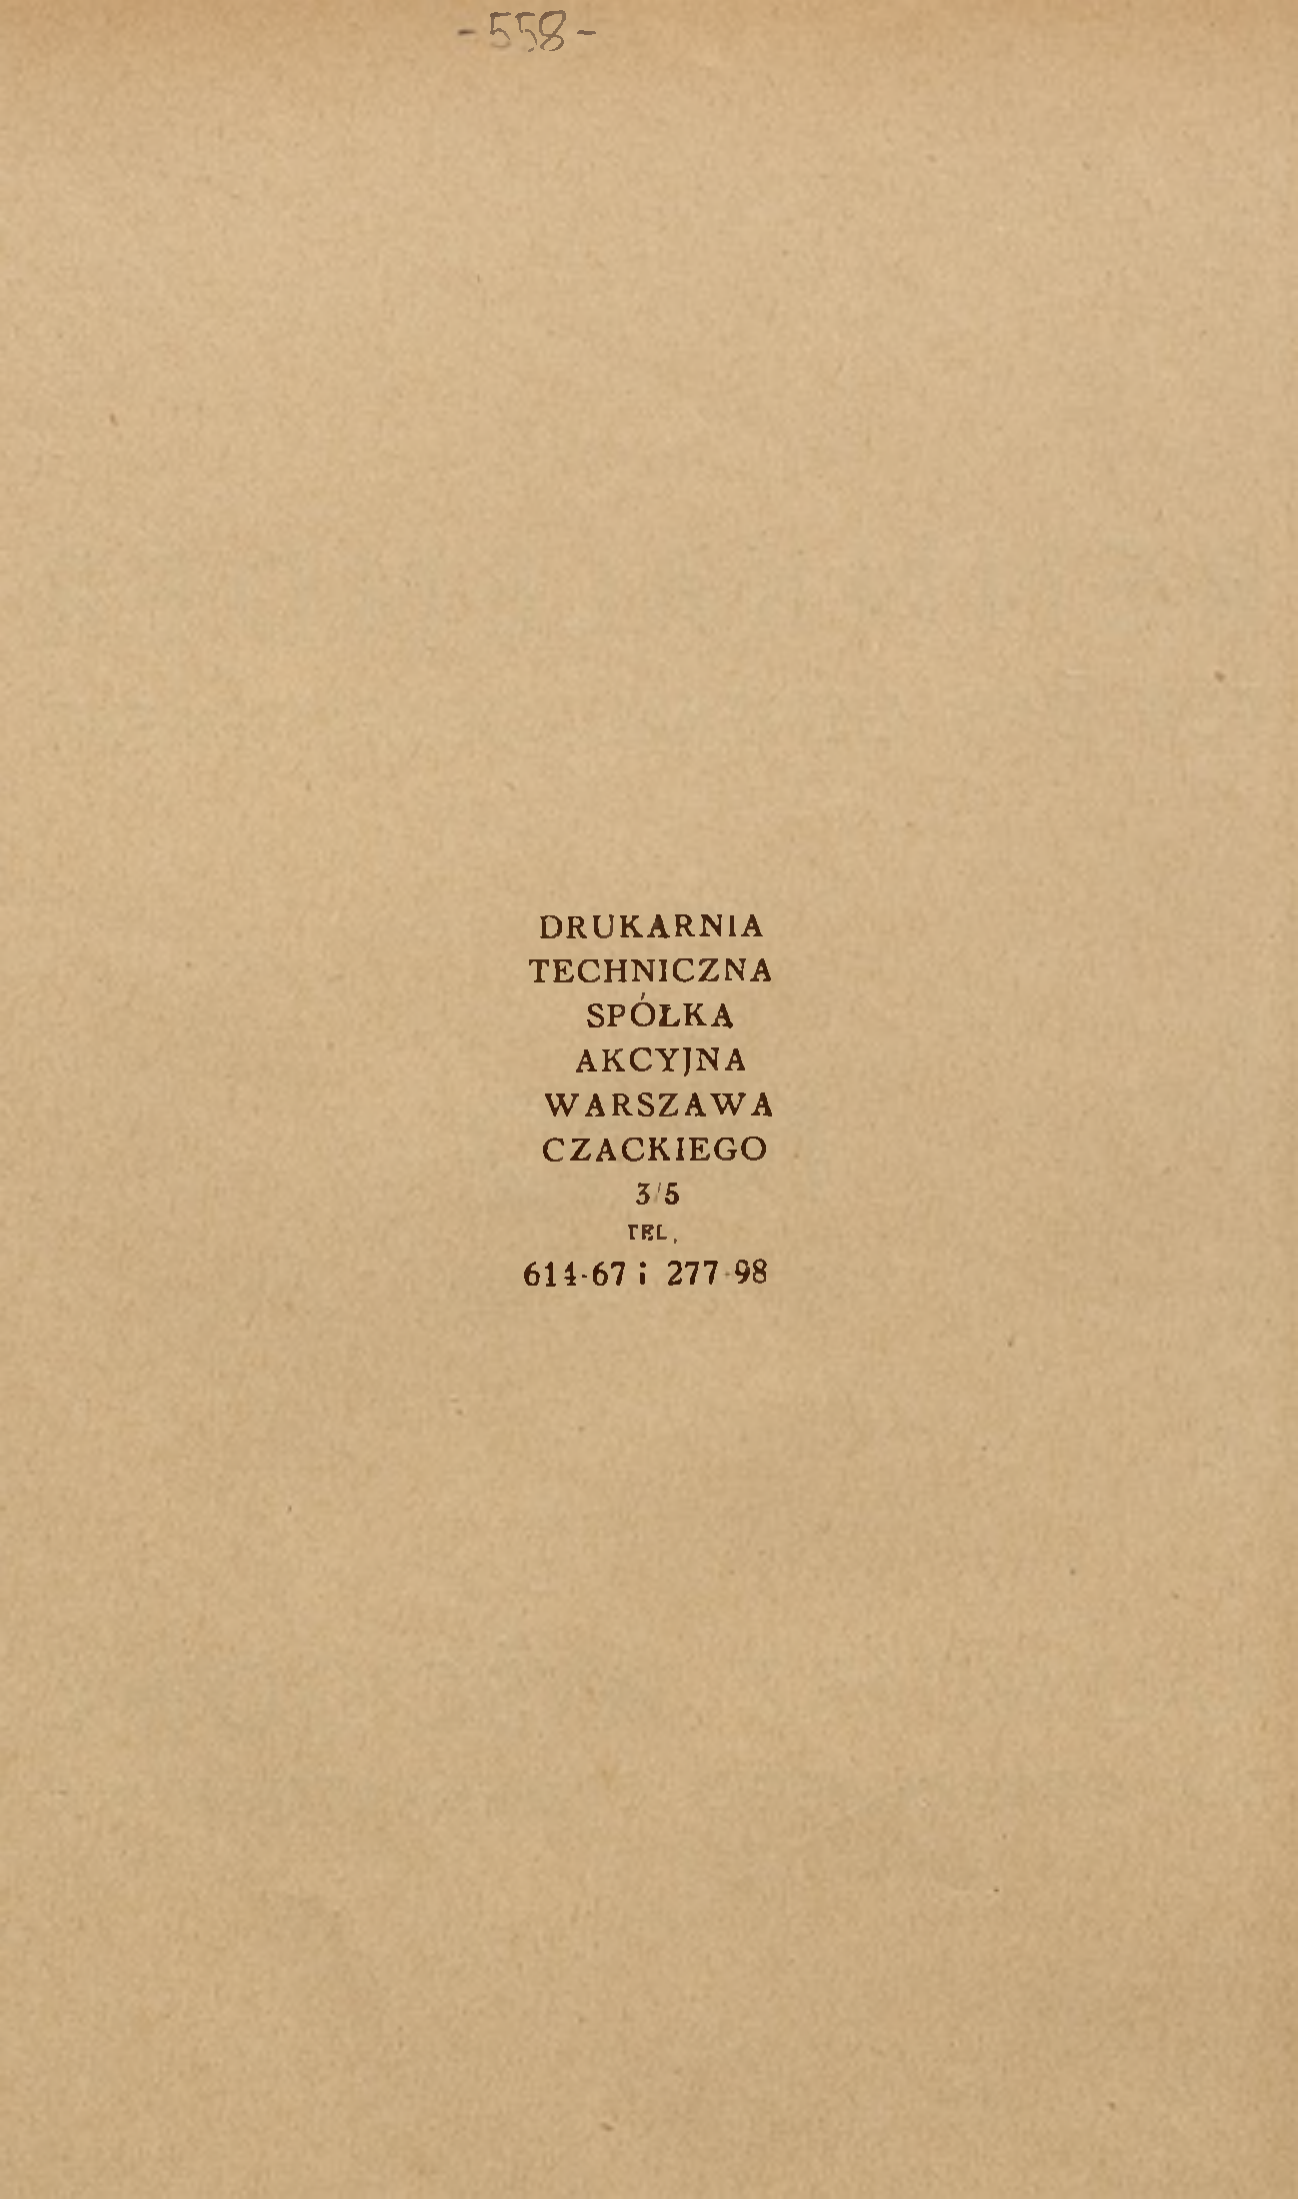 -558-
DRUKARNIA
TECHNICZNA
SPÓŁKA
AKCYJNA
WARSZAWA
CZACKIEGO
3/5
TEL.
614-67 i 277-98